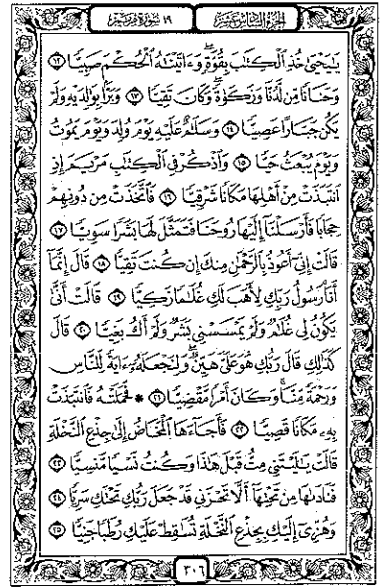 الجُزءُ السَّادِسُ عَشَرَ
١٩ سُورَةُ مَرْيَمَ
يَٰيَحْيَىٰ خُذِ ٱلْكِتَٰبَ بِقُوَّةٍ ۖ وَءَاتَيْنَٰهُ ٱلْحُكْمَ صَبِيًّا ١٢
وَحَنَانًا مِّن لَّدُنَّا وَزَكَوٰةً ۖ وَكَانَ تَقِيًّا ١٣ وَبَرًّۢا بِوَٰلِدَيْهِ وَلَمْ
يَكُن جَبَّارًا عَصِيًّا ١٤ وَسَلَٰمٌ عَلَيْهِ يَوْمَ وُلِدَ وَيَوْمَ يَمُوتُ
وَيَوْمَ يُبْعَثُ حَيًّا ١٥ وَٱذْكُرْ فِى ٱلْكِتَٰبِ مَرْيَمَ إِذِ
ٱنتَبَذَتْ مِنْ أَهْلِهَا مَكَانًا شَرْقِيًّا ١٦ فَٱتَّخَذَتْ مِن دُونِهِمْ
حِجَابًا فَأَرْسَلْنَآ إِلَيْهَا رُوحَنَا فَتَمَثَّلَ لَهَا بَشَرًا سَوِيًّا ١٧
قَالَتْ إِنِّىٓ أَعُوذُ بِٱلرَّحْمَٰنِ مِنكَ إِن كُنتَ تَقِيًّا ١٨ قَالَ إِنَّمَآ
أَنَا۠ رَسُولُ رَبِّكِ لِأَهَبَ لَكِ غُلَٰمًا زَكِيًّا ١٩ قَالَتْ أَنَّىٰ
يَكُونُ لِى غُلَٰمٌ وَلَمْ يَمْسَسْنِى بَشَرٌ وَلَمْ أَكُ بَغِيًّا ٢٠ قَالَ
كَذَٰلِكِ قَالَ رَبُّكِ هُوَ عَلَىَّ هَيِّنٌ ۖ وَلِنَجْعَلَهُۥٓ ءَايَةً لِّلنَّاسِ
وَرَحْمَةً مِّنَّا ۚ وَكَانَ أَمْرًا مَّقْضِيًّا ٢١ * فَحَمَلَتْهُ فَٱنتَبَذَتْ
بِهِۦ مَكَانًا قَصِيًّا ٢٢ فَأَجَآءَهَا ٱلْمَخَاضُ إِلَىٰ جِذْعِ ٱلنَّخْلَةِ
قَالَتْ يَٰلَيْتَنِى مِتُّ قَبْلَ هَٰذَا وَكُنتُ نَسْيًا مَّنسِيًّا ٢٣
فَنَادَىٰهَا مِن تَحْتِهَآ أَلَّا تَحْزَنِى قَدْ جَعَلَ رَبُّكِ تَحْتَكِ سَرِيًّا ٢٤
وَهُزِّىٓ إِلَيْكِ بِجِذْعِ ٱلنَّخْلَةِ تُسَٰقِطْ عَلَيْكِ رُطَبًا جَنِيًّا ٢٥
٣٠٦